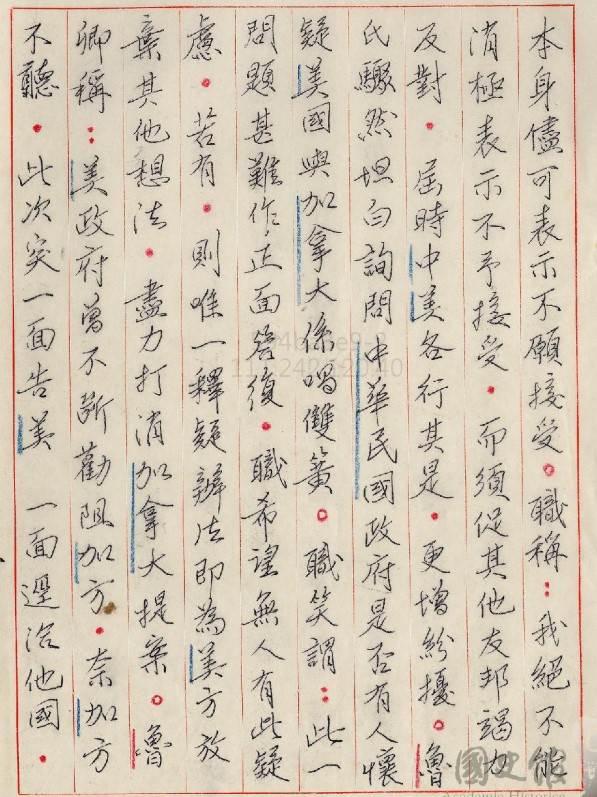 本身儘可表示不願接受。職稱：我絕不能
消極表示不予接受。而須促其他友邦竭力
反對。屆時中美各行其是。更增紛擾。魯
氏驟然坦白詢問中華民國政府是否有人懷
疑美國與加拿大係唱雙簧。職笑謂：此一
問題甚難作正面答復。職希望無人有此疑
慮。若有。則唯一釋疑辦法即為美方放
棄其他想法。盡力打消加拿大提案。魯
卿稱：美政府曾不斷勸阻加方。奈加方
不聽。此次突一面告美 一面逕洽他國。
國史館